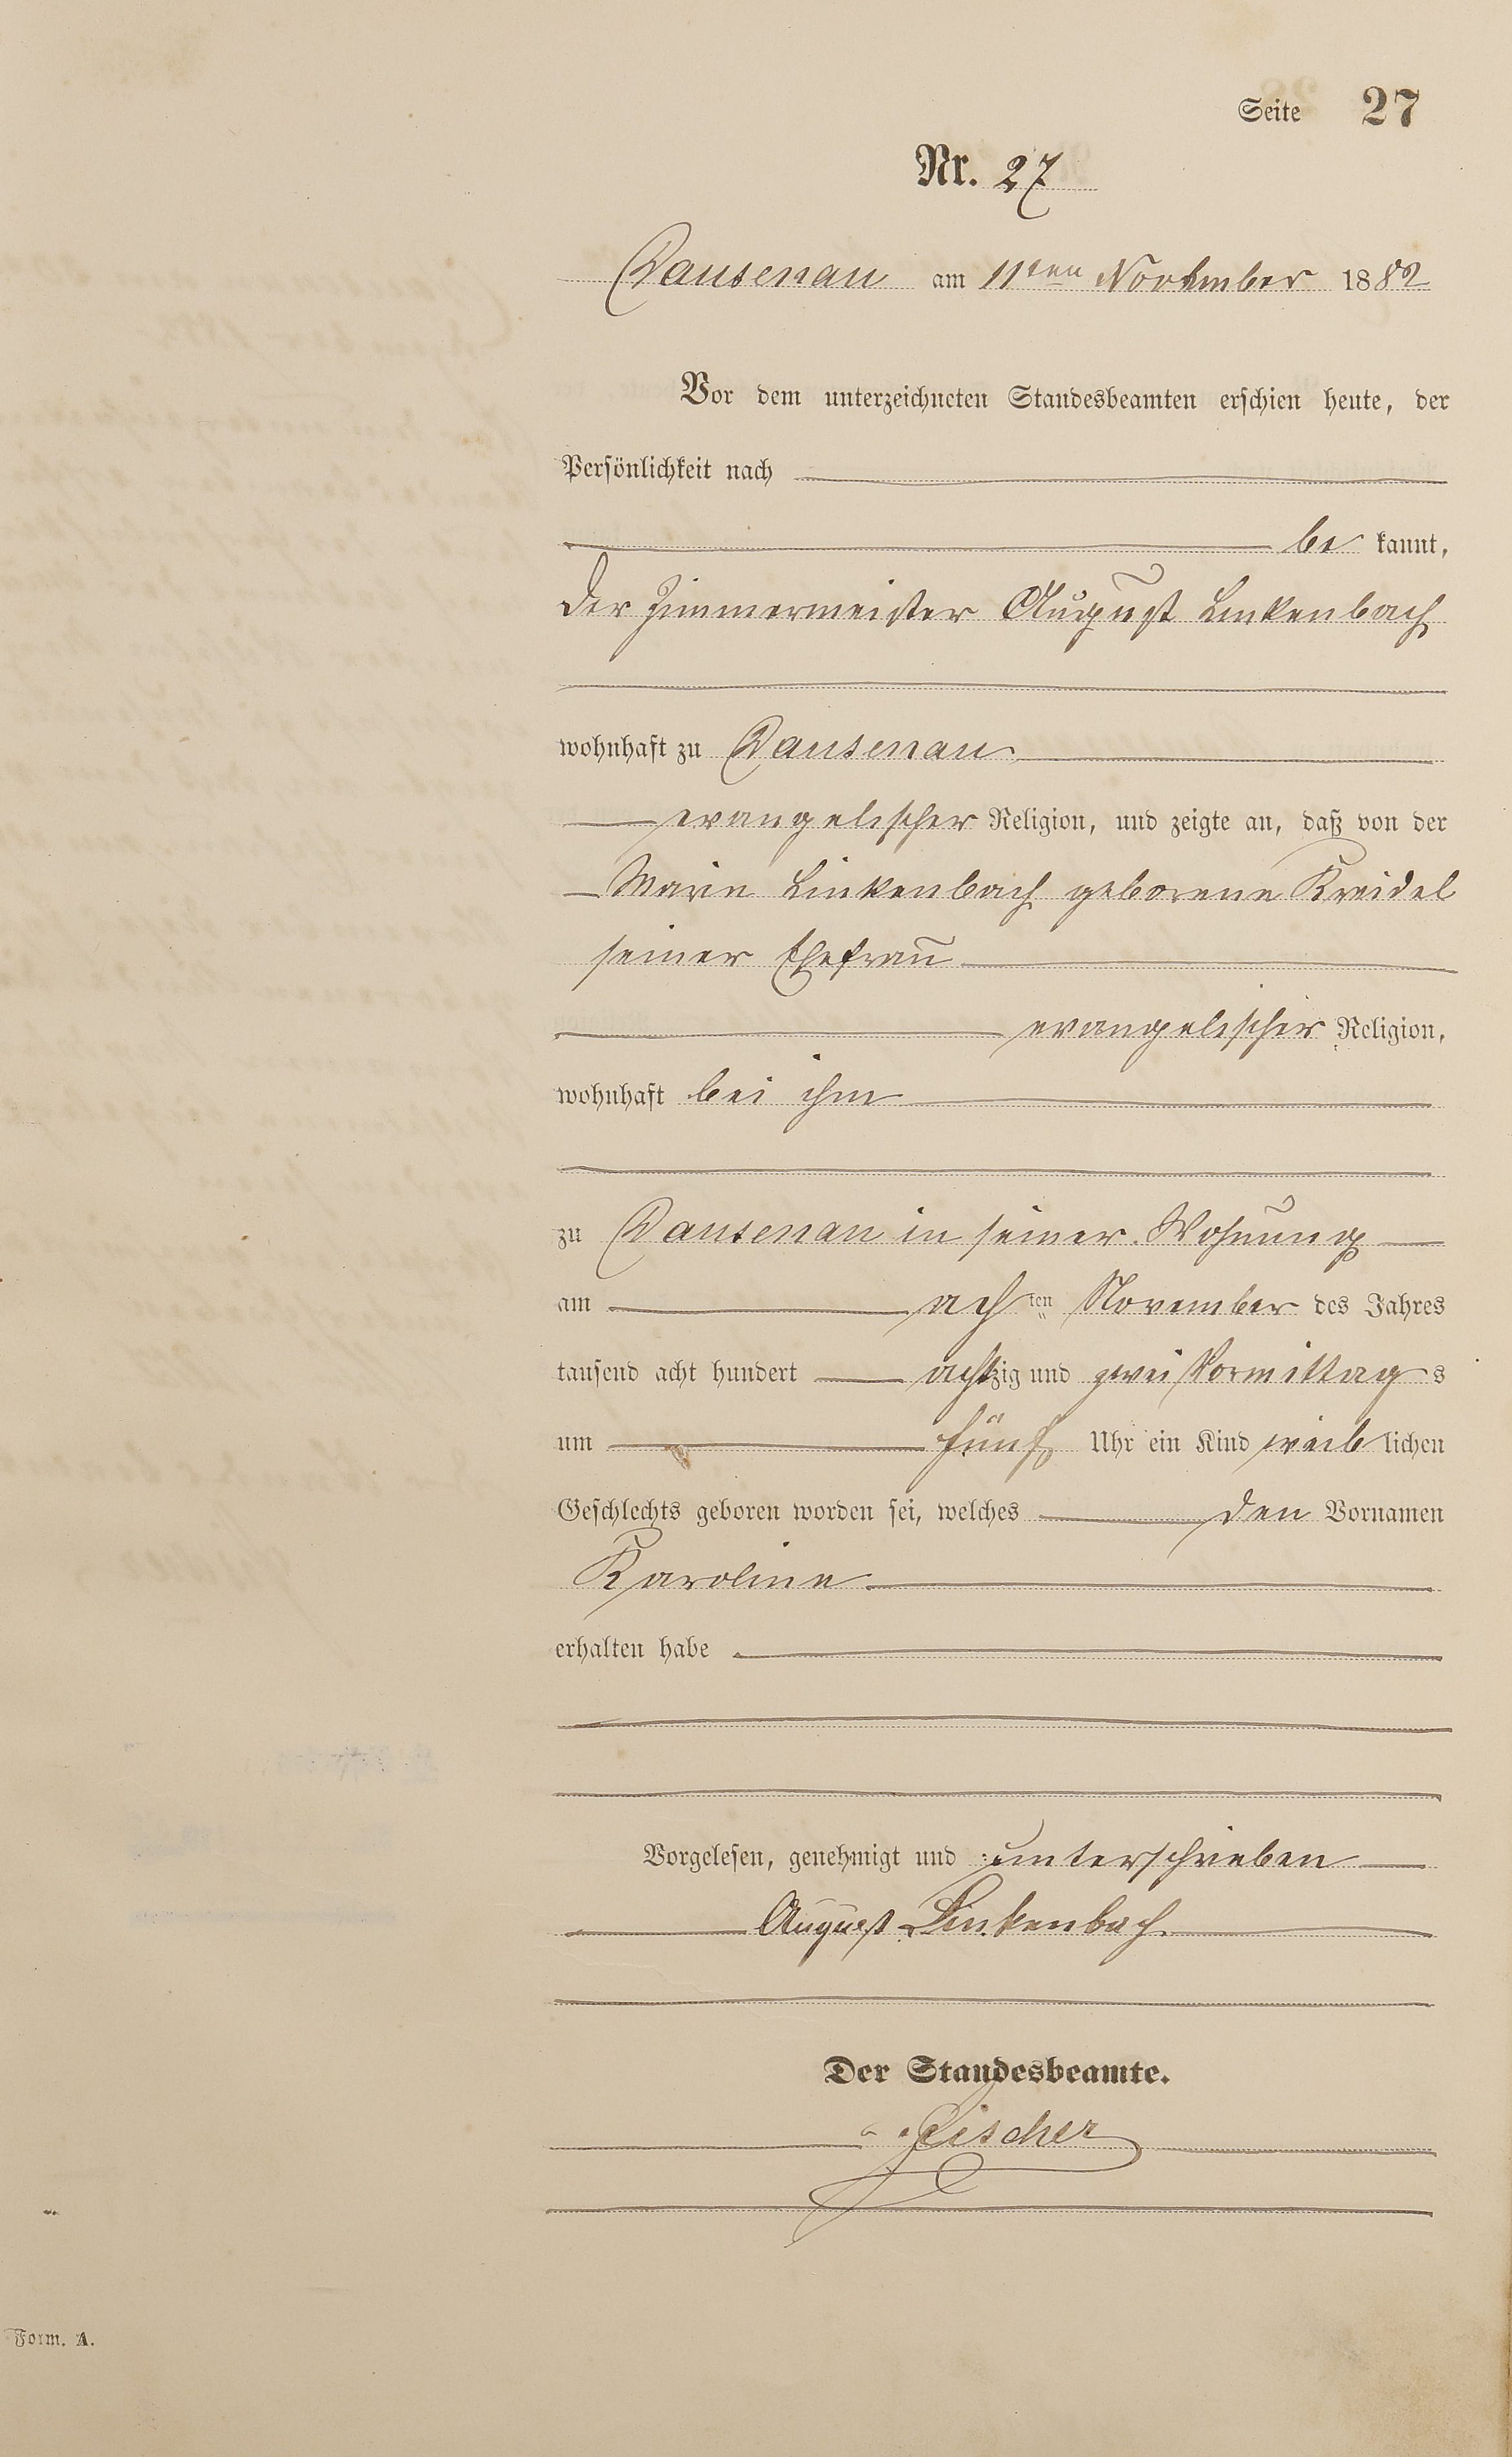 Seite 27
Nr. 27
Dausenau am 11ten November 1882
Vor dem unterzeichneten Standesbeamten erschien heute, der
Persönlichkeit nach
be kannt,
der Zimmermeister August Linkenbach
wohnhaft zu Dausenau
evangelischer Religion, und zeigte an, daß von der
Marie Linkenbach geborene Kreidel
seiner Ehefrau
evangelischer Religion,
wohnhaft bei ihm
zu Dausenau in seiner Wohnung
am achten November des Jahres
tausend acht hundert achtzig und zwei Vormittags
um fünf Uhr ein Kind weiblichen
Geschlechts geboren worden sei, welches den Vornamen
Karoline
erhalten habe
Vorgelesen, genehmigt und unterschrieben
August Linkenbach
Der Standesbeamte.
Fischer
Form. A.